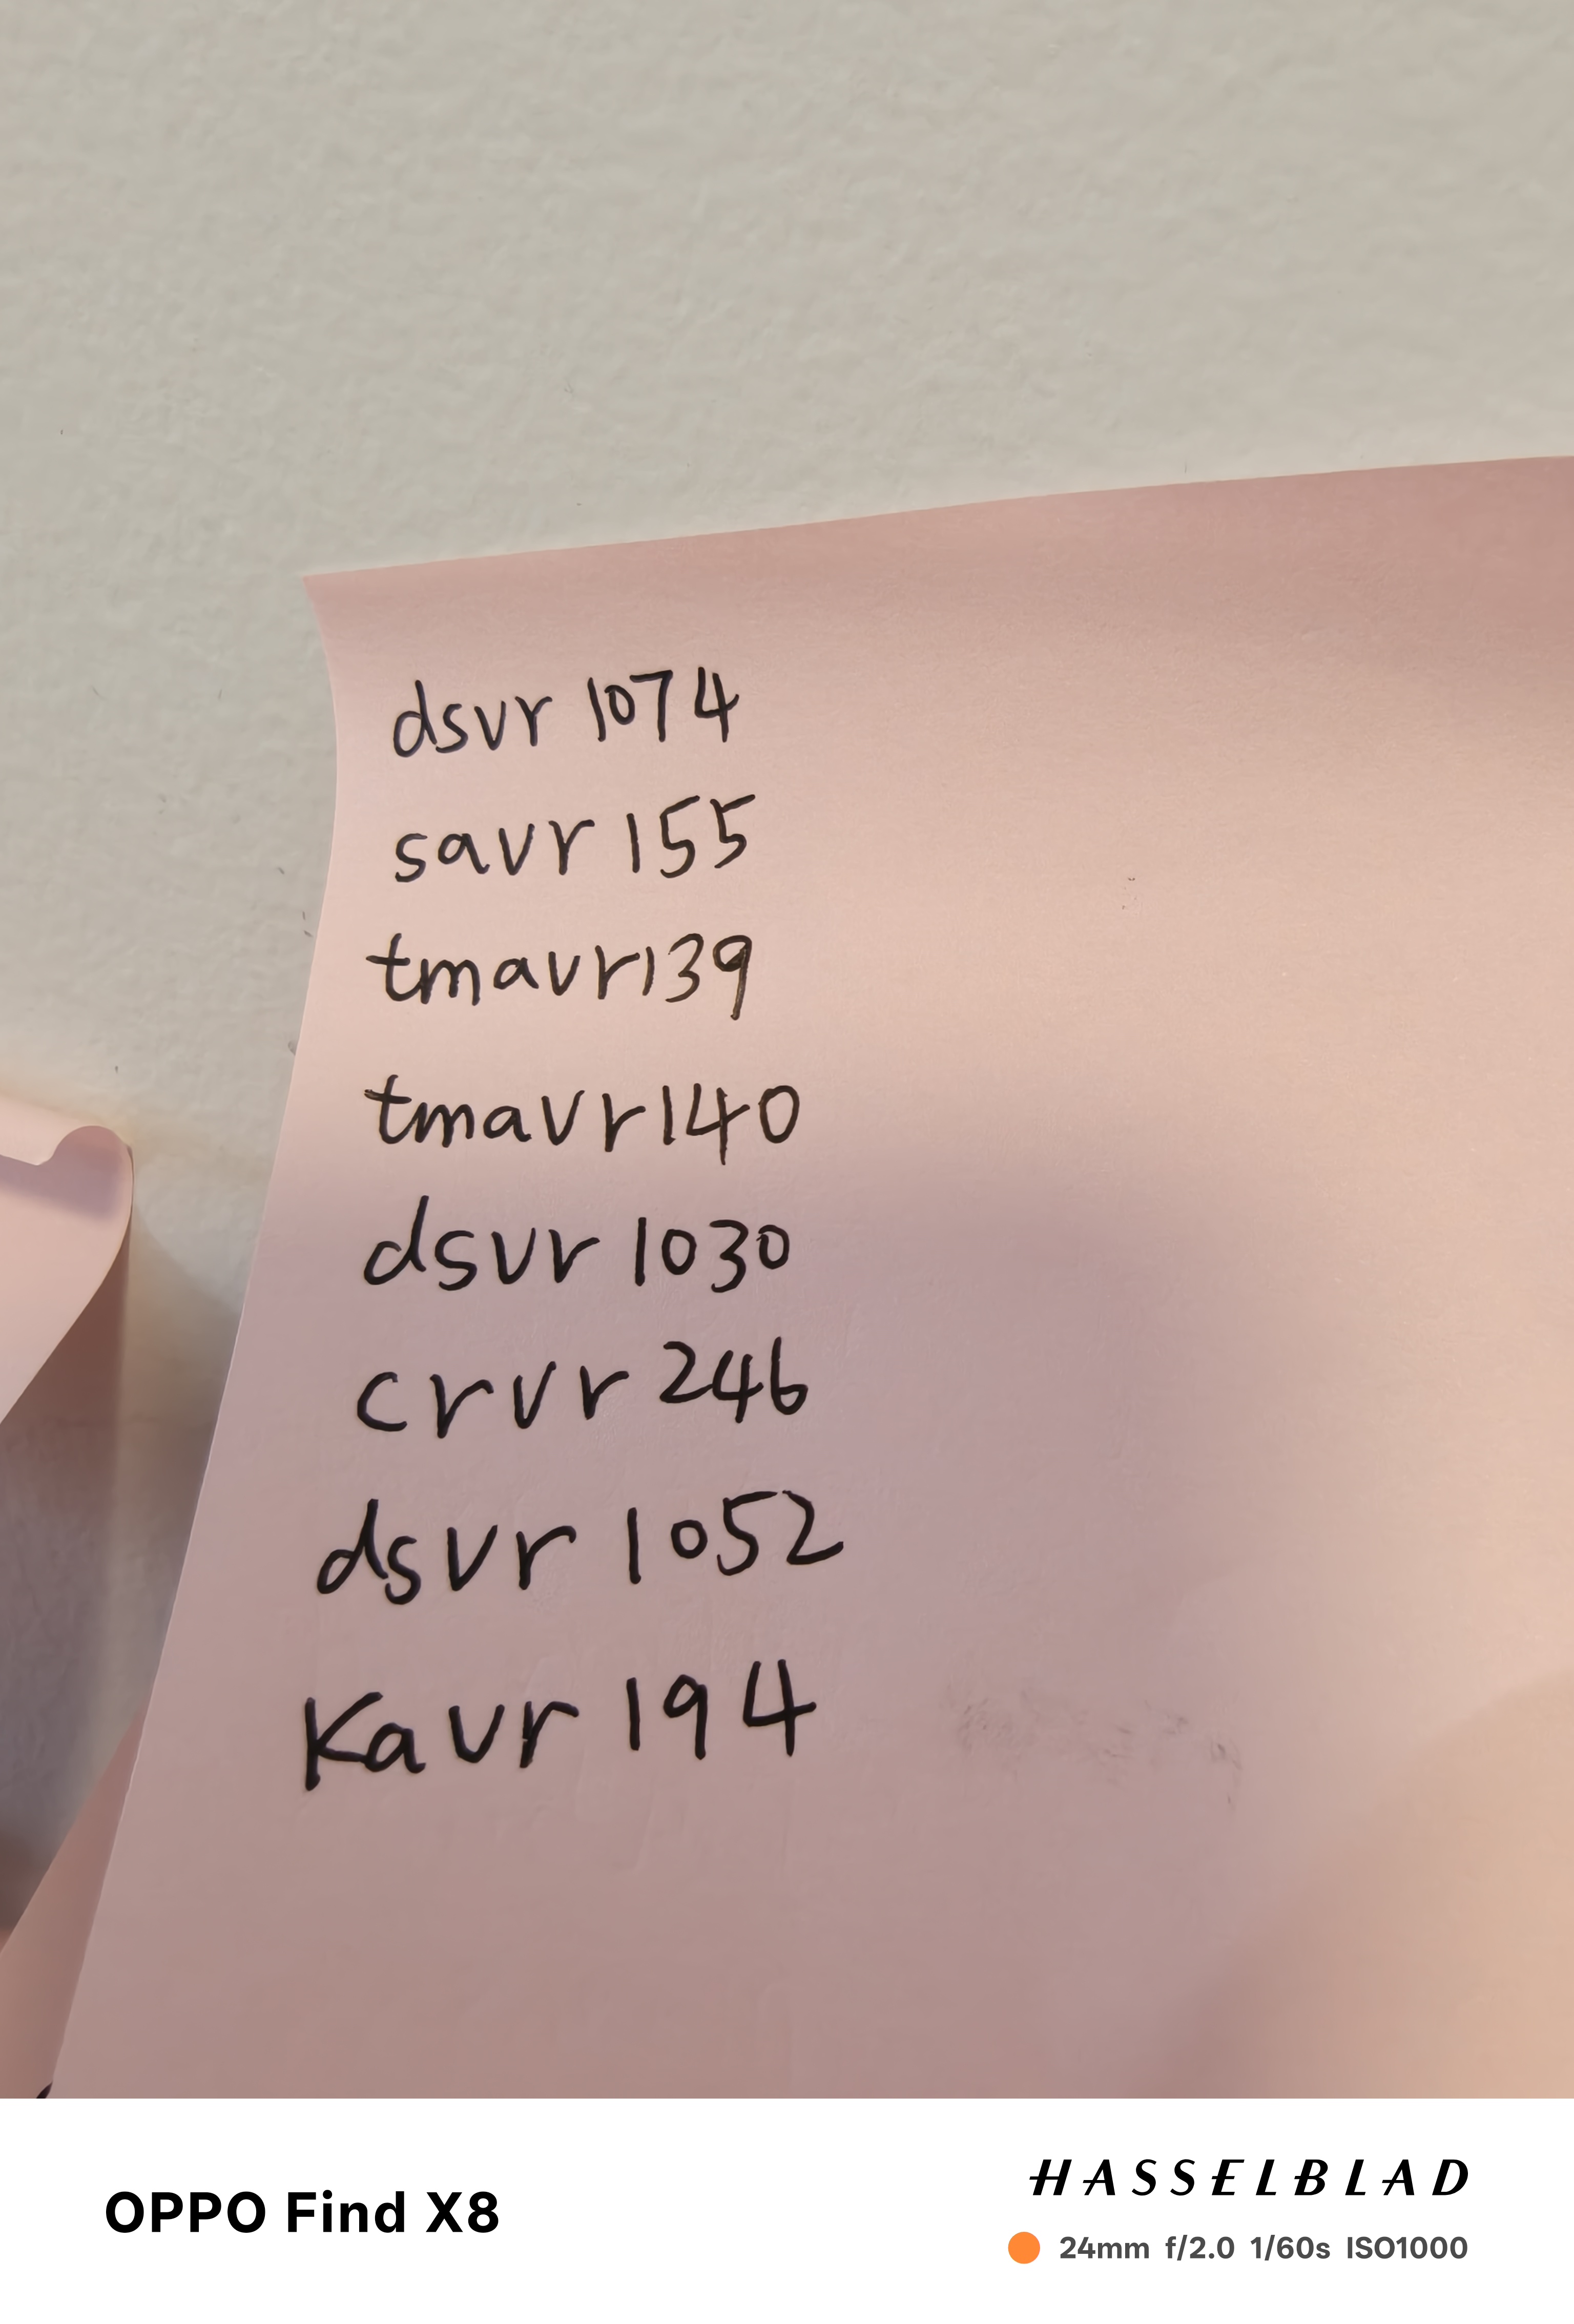 dsvr 1074
savr 155
tmavr139
tmavr140
dsvr 1030
crvr 246
dsvr 1052
Kavr 194
OPPO Find X8
HASSELBLAD
24mm f/2.0 1/60s ISO1000